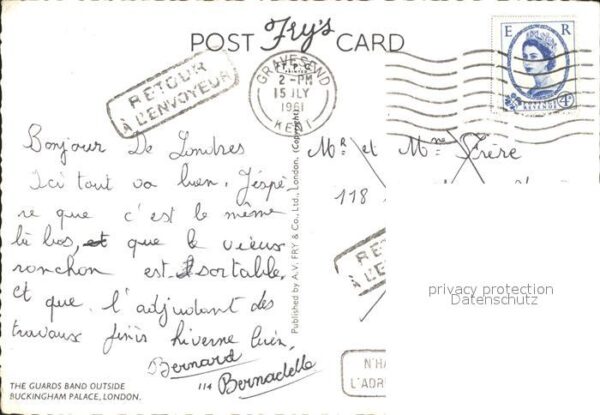 POST Fry's CARD
E R
POSTAGE REVENUE
4D
RETOUR
À L'ENVOYEUR
GRAVESEND
2 - PM
15 JLY
1961
KENT
Bonjour De Londres
Ici tout va bien. J'espé-
re que c'est le même
là bas, et que le vieux
ronchon est sortable.
et que l'adjudant des
travaux finis hiverne bien.
Bernard
Bernadette
Published by A.V. FRY & Co., Ltd., London. (Copyright)
Mr et Mme Frère
118
RETO
À L'EN
privacy protection
Datenschutz
N'HA
L'ADR
THE GUARDS BAND OUTSIDE
BUCKINGHAM PALACE, LONDON.
114